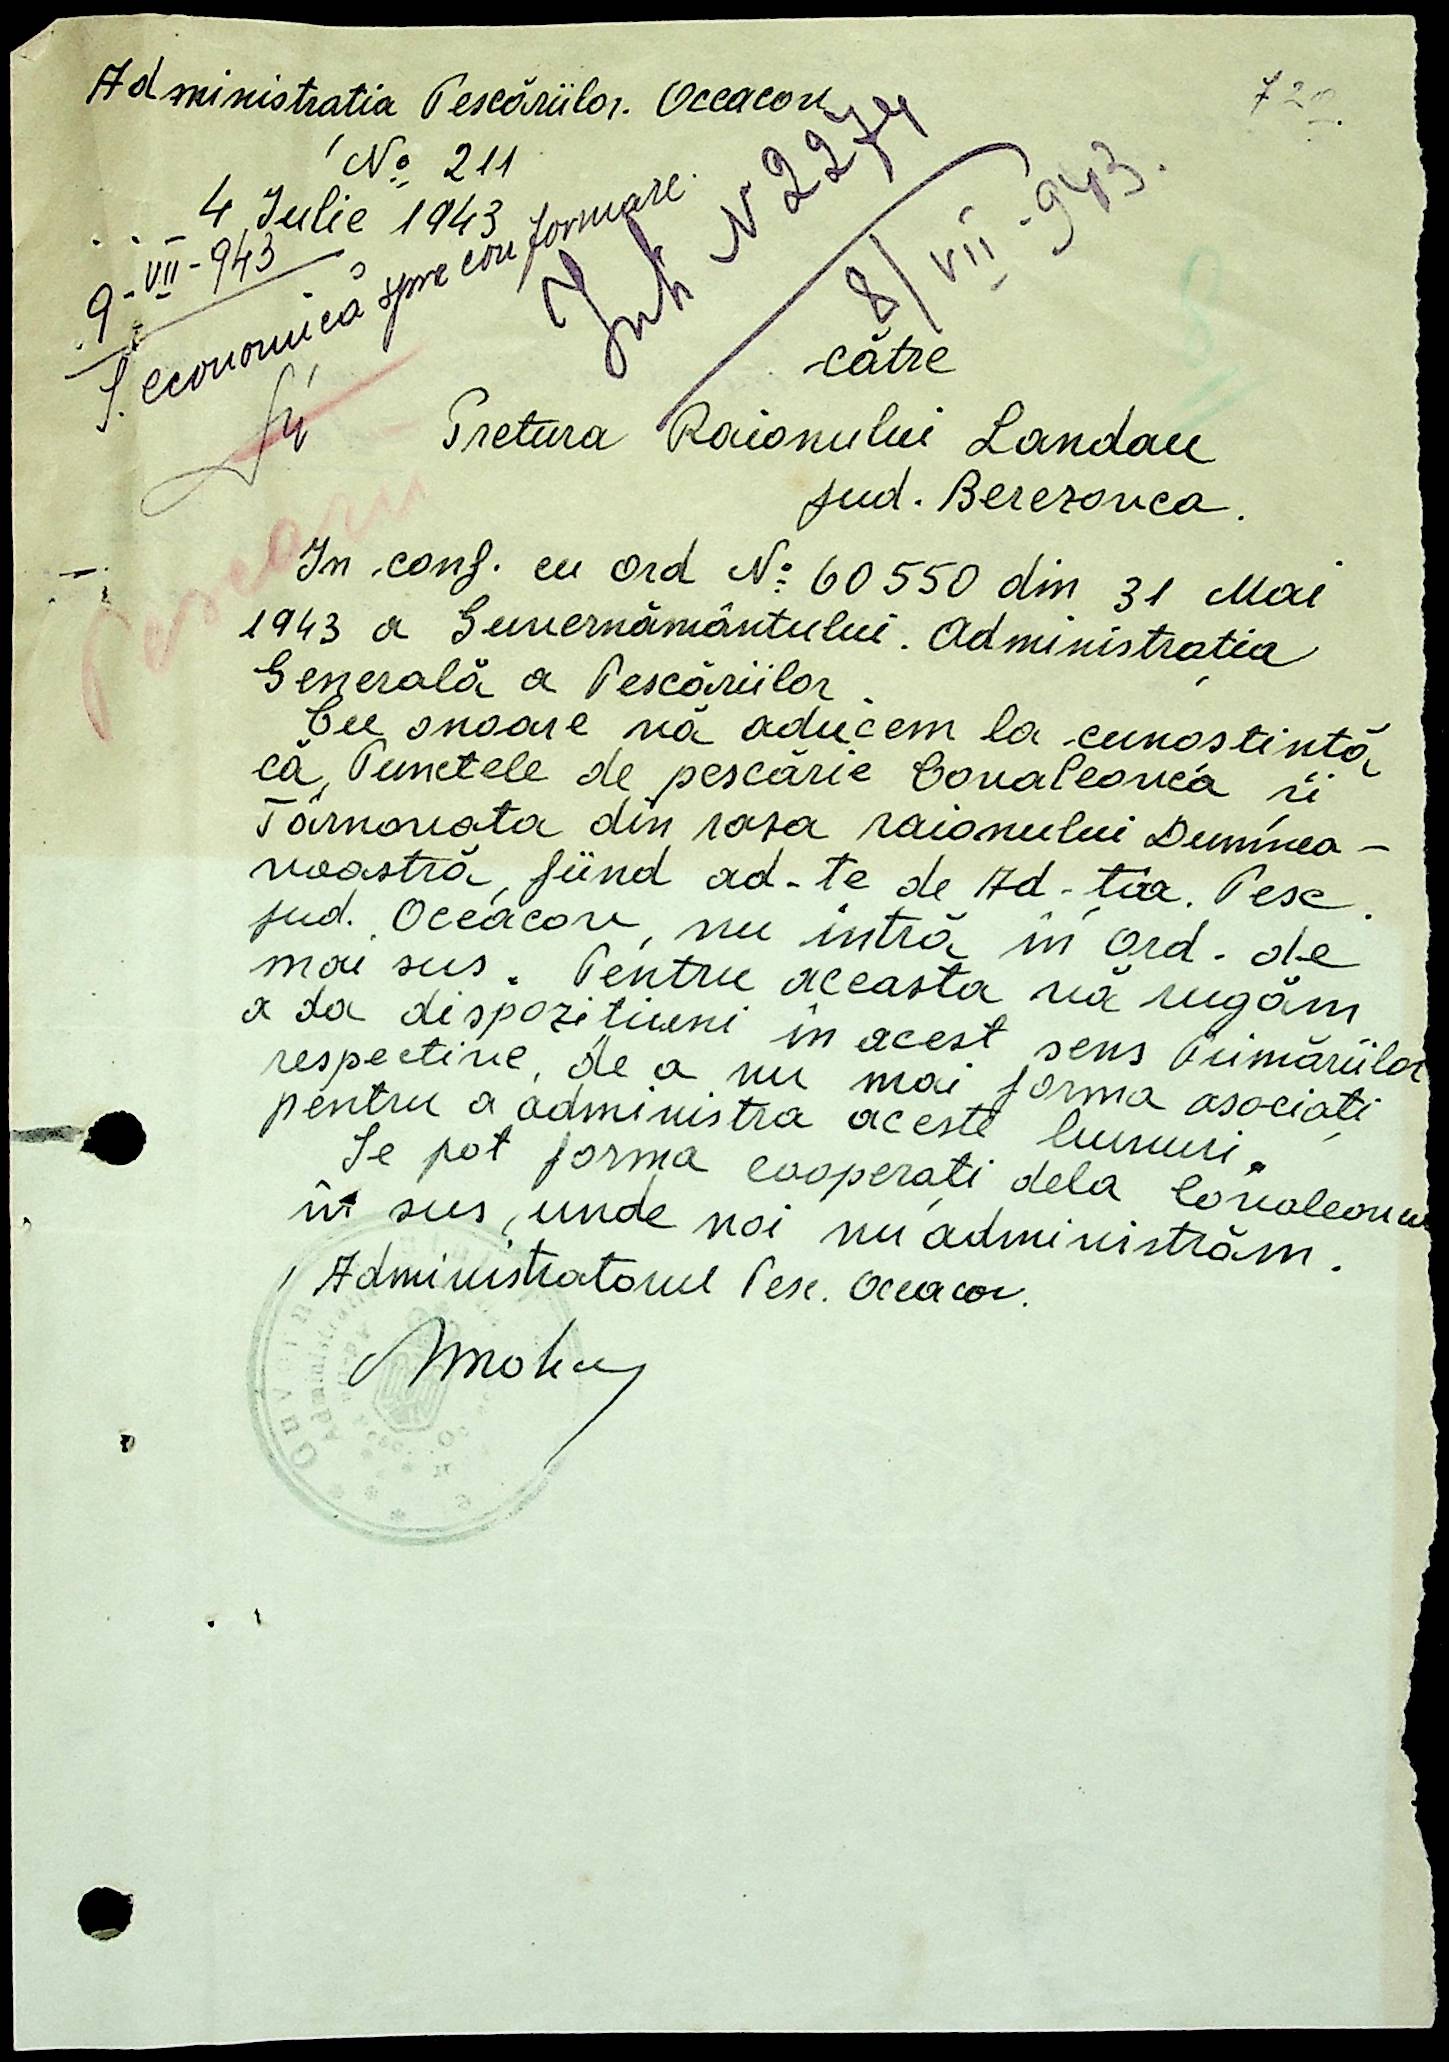 Administratia Pescăriilor. Oceacov
720.
No 211
4 Iulie 1943
9-VII-943
S. economică spre conformare.
Int. N 2274
8/VII-943.
către
Pretura Raionului Landau
jud. Berezovca.
Pescarii
In conf. cu ord No 60550 din 31 Mai
1943 a Guvernământului. Administrația
Generală a Pescăriilor
Cu onoare vă aducem la cunostintă,
că, Punctele de pescărie Covaleovca și
Târnovata din raza raionului Dumnea-
voastră, fiind ad-te de Ad-ția. Pesc.
jud. Oceacov, nu intră în ord. de
mai sus. Pentru aceasta vă rugăm
a da dispozitiuni în acest sens Primăriilor
respective, de a nu mai forma asociați
pentru a administra aceste bunuri.
Se pot forma cooperați dela Covaleovca
în sus, unde noi nu administrăm.
Administratorul Pesc. Oceacov.